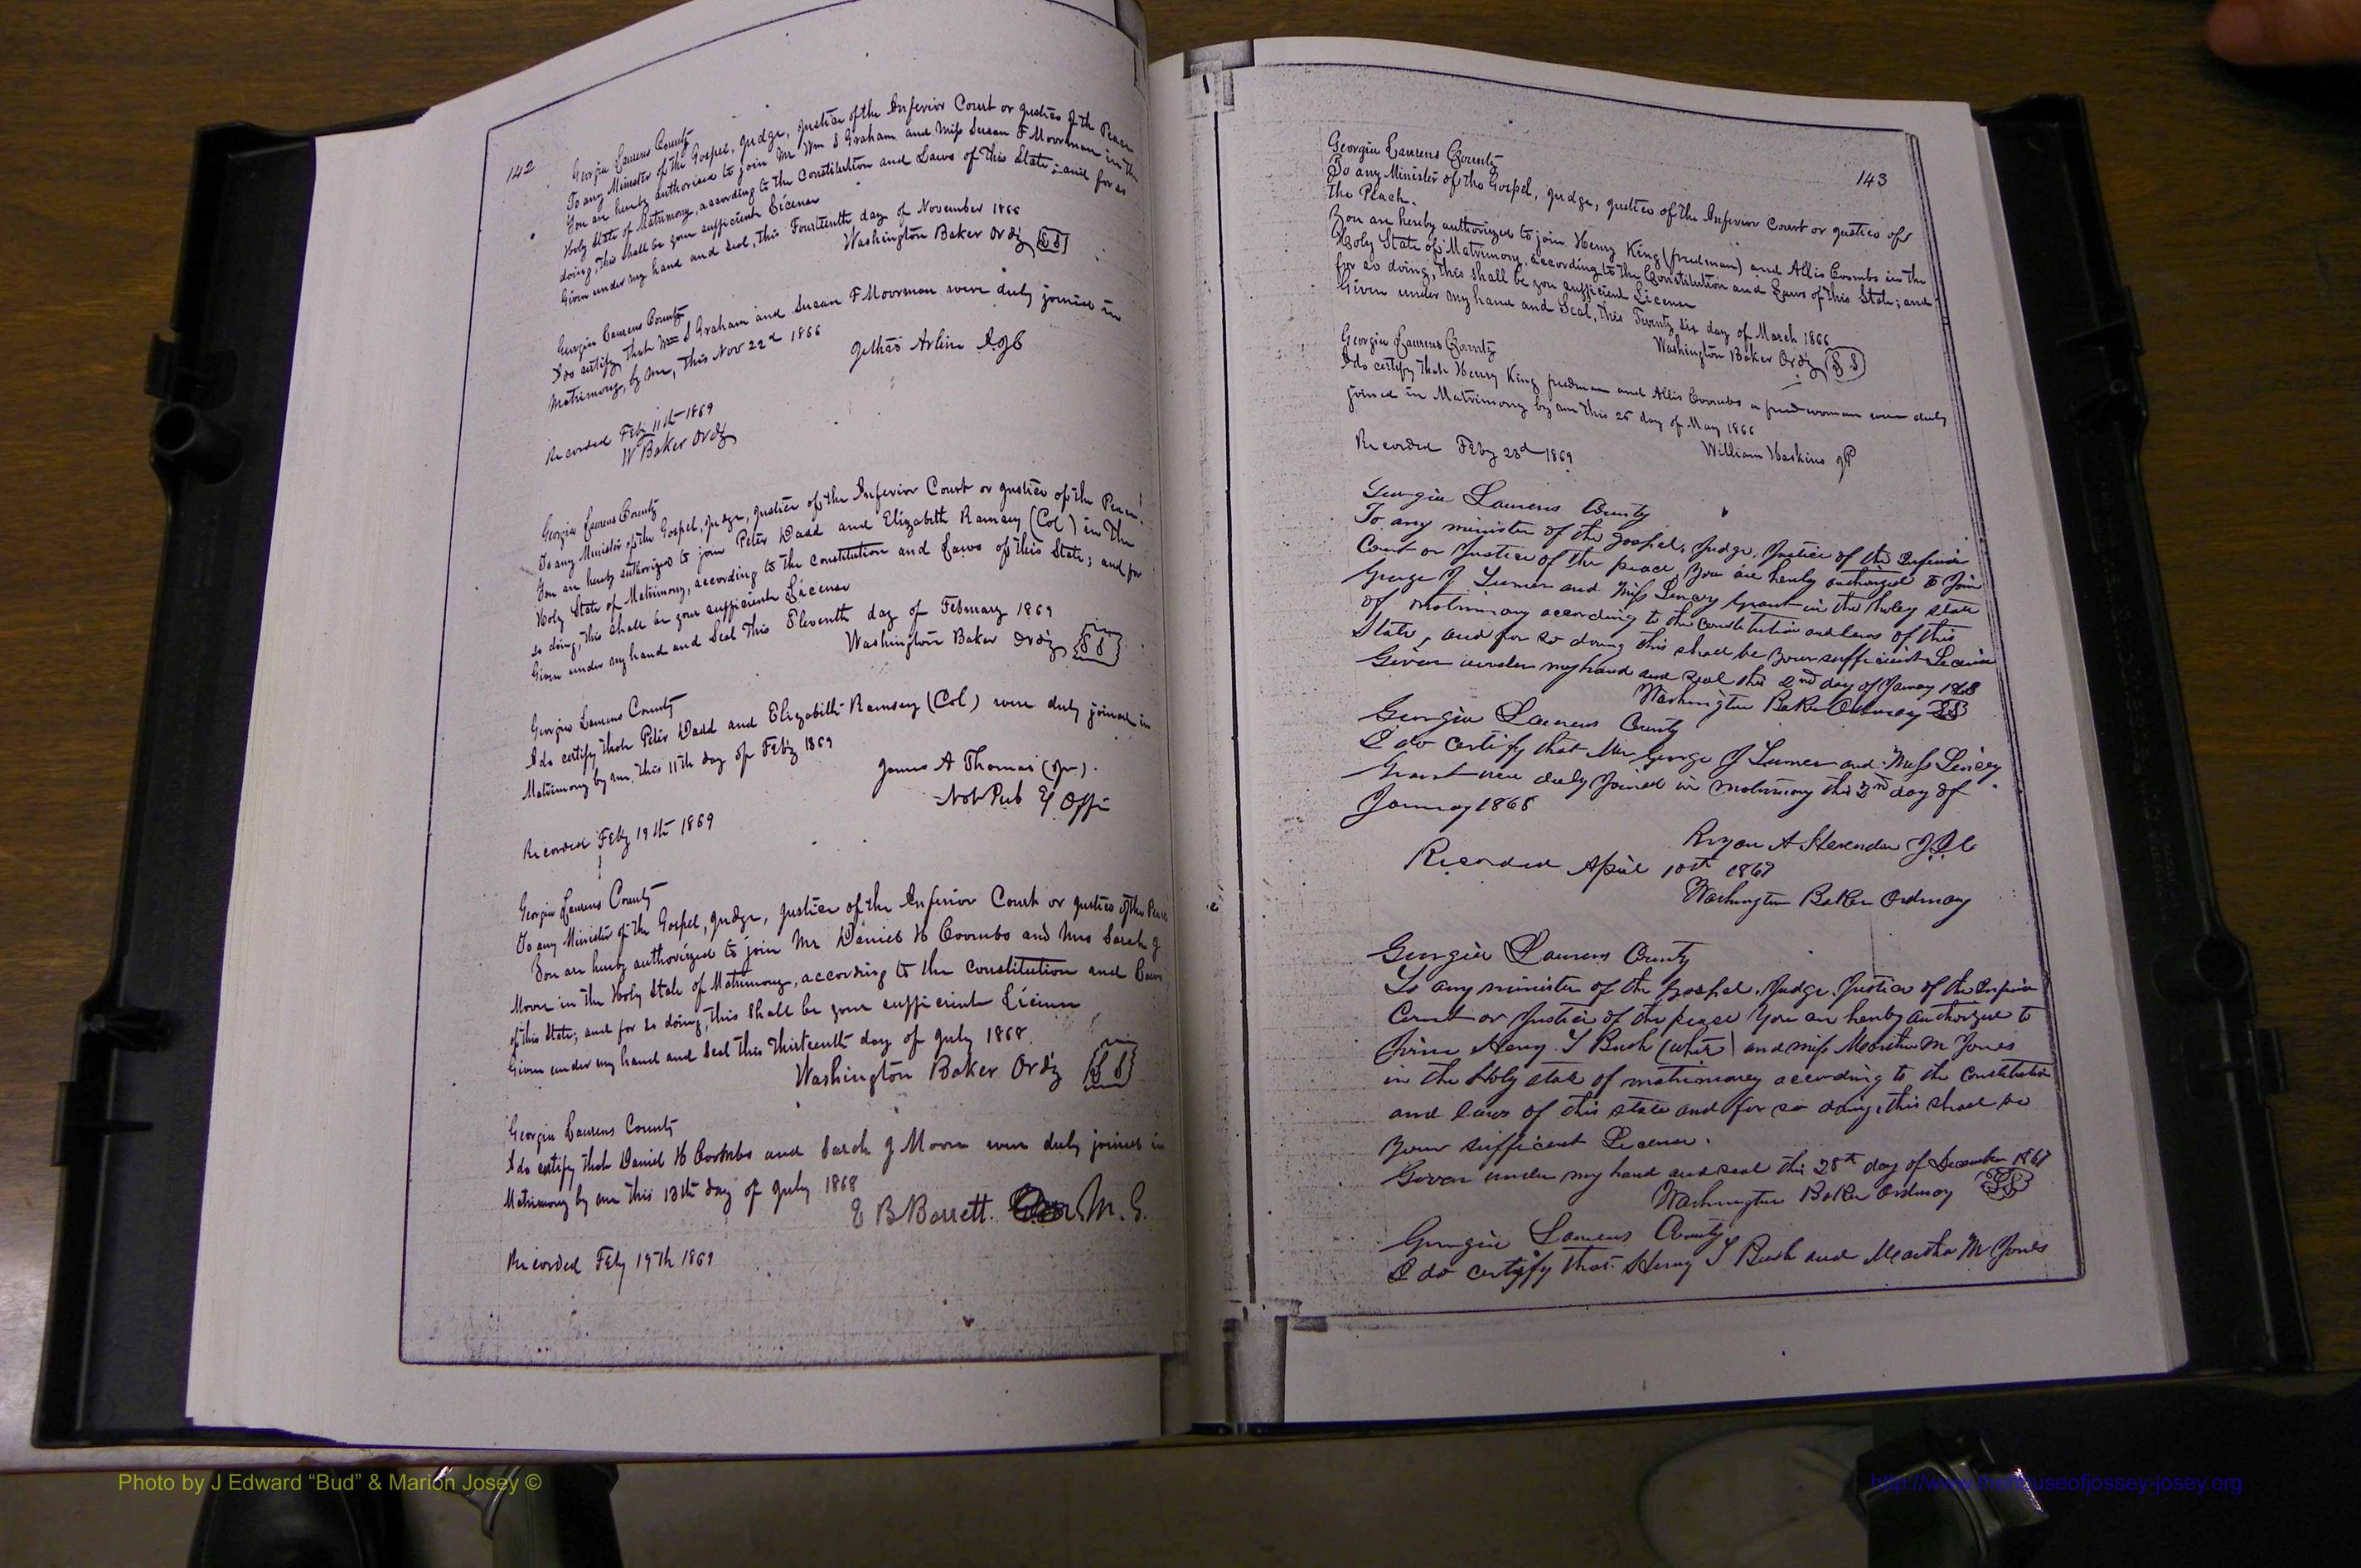 142
Georgia Laurens County
To any Minister of the Gospel, Judge, Justice of the Inferior Court or Justice of the Peace
You are hereby authorised to join Mr Wm S Graham and Miss Susan F Moorman in the
Holy State of Matrimony, according to the Constitution and Laws of this State; and for so
doing, this shall be your sufficient License
Given under my hand and Seal, this Fourteenth day of November 1866
Washington Baker Ordy LS
Georgia Laurens County
I do certify that Wm S Graham and Susan F Moorman were duly joined in
Matrimony, by me, this Nov 22d 1866
Arline J.I.C
Recorded Feby 11th 1869
W Baker Ordy
Georgia Laurens County
To any Minister of the Gospel, Judge, Justice of the Inferior Court or Justice of the Peace
You are hereby authorized to join Peter Dadd and Elizabeth Ramsey (Col) in the
Holy State of Matrimony, according to the Constitution and Laws of this State; and for
so doing, this shall be your sufficient License
Given under my hand and Seal this Eleventh day of February 1869
Washington Baker Ordy LS
Georgia Laurens County
I do certify that Peter Dadd and Elizabeth Ramsey (Col) were duly joined in
Matrimony by me, this 11th day of Feby 1869
James A Thomas (Jr)
Not Pub Ex Offi
Recorded Feby 19th 1869
Georgia Laurens County
To any Minister of the Gospel, Judge, Justice of the Inferior Court or Justice of the Peace
You are hereby authorized to join Mr Daniel H Coombs and Mrs Sarah J
Moore in the Holy State of Matrimony, according to the Constitution and Laws
of this State, and for so doing, this shall be your sufficient License
Given under my hand and Seal this Thirteenth day of July 1868.
Washington Baker Ordy LS
Georgia Laurens County
I do certify that Daniel H Coombs and Sarah J Moore were duly joined in
Matrimony by me this 13th day of July 1868
E B Barrett. M.G.
Recorded Feby 19th 1869
143
Georgia Laurens County
To any Minister of the Gospel, Judge, Justice of the Inferior Court or Justice of
the Peach.
You are hereby authorized to join Henry King (fredman) and Allis Coombs in the
Holy State of Matrimony, according to the Constitution and Laws of this State; and
for so doing, this shall be you sufficient License
Given under my hand and Seal, this Twenty six day of March 1866
Washington Baker Ordy LS
Georgia Laurens County
I do certify that Henry King fredman and Allis Coombs a fredwoman were duly
joined in Matrimony by me this 26 day of May 1866
William Haskins JP
Recorded Feby 23d 1869
Georgia Laurens County
To any minister of the Gospel, Judge, Justice of the Inferior
Court or Justice of the peace You are hereby authorized to Join
George J Turner and Miss Linsey Grant in the holey state
of matrimony according to the Constitution and laws of this
State, and for so doing this shall be your sufficient License
Given under my hand and Seal this 2nd day of Janury 1868
Washington Baker Ordinary LS
Georgia Laurens County
I do certify that Mr George J Turner and Miss Linsey
Grant were duly Joined in matrimony this 2nd day of
Janury 1868
Bryan A J.I.C
Recorded April 10th 1869
Washington Baker Ordinary
Georgia Laurens County
To any minister of the Gospel, Judge, Justice of the Inferior
Court or Justice of the peace You are hereby authorized to
Join Henry T Bush (white) and miss Martha M Jones
in the Holy state of matrimony according to the Constitution
and laws of this state and for so doing, this shall be
your sufficient License.
Given under my hand and seal this 28th day of December 1867
Washington Baker Ordinary LS
Georgia Laurens County
I do certify that Henry T Bush and Martha M Jones
Photo by J Edward “Bud” & Marion Josey ©
http://www.thehouseofjossey-josey.org